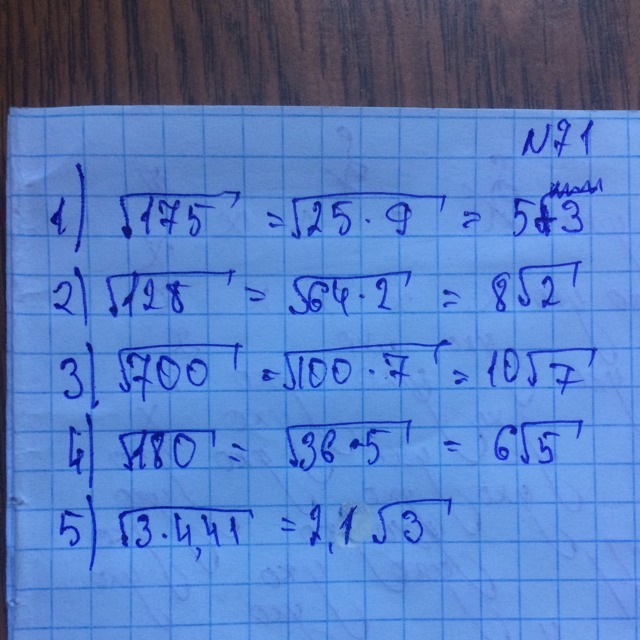 N71
1) √175 = √25 · 9 = 5√3
2) √128 = √64 · 2 = 8√2
3) √700 = √100 · 7 = 10√7
4) √180 = √36 · 5 = 6√5
5) √3 · 4,41 = 2,1√3